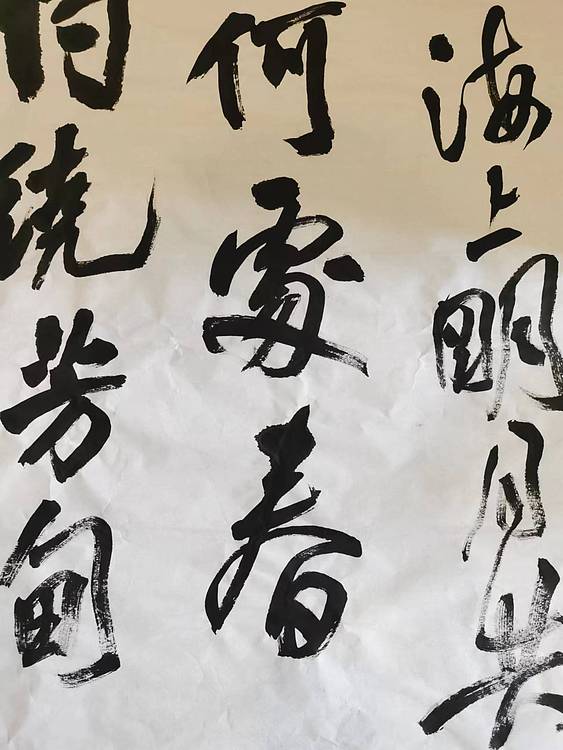 海上明月共
何處春
繞芳甸